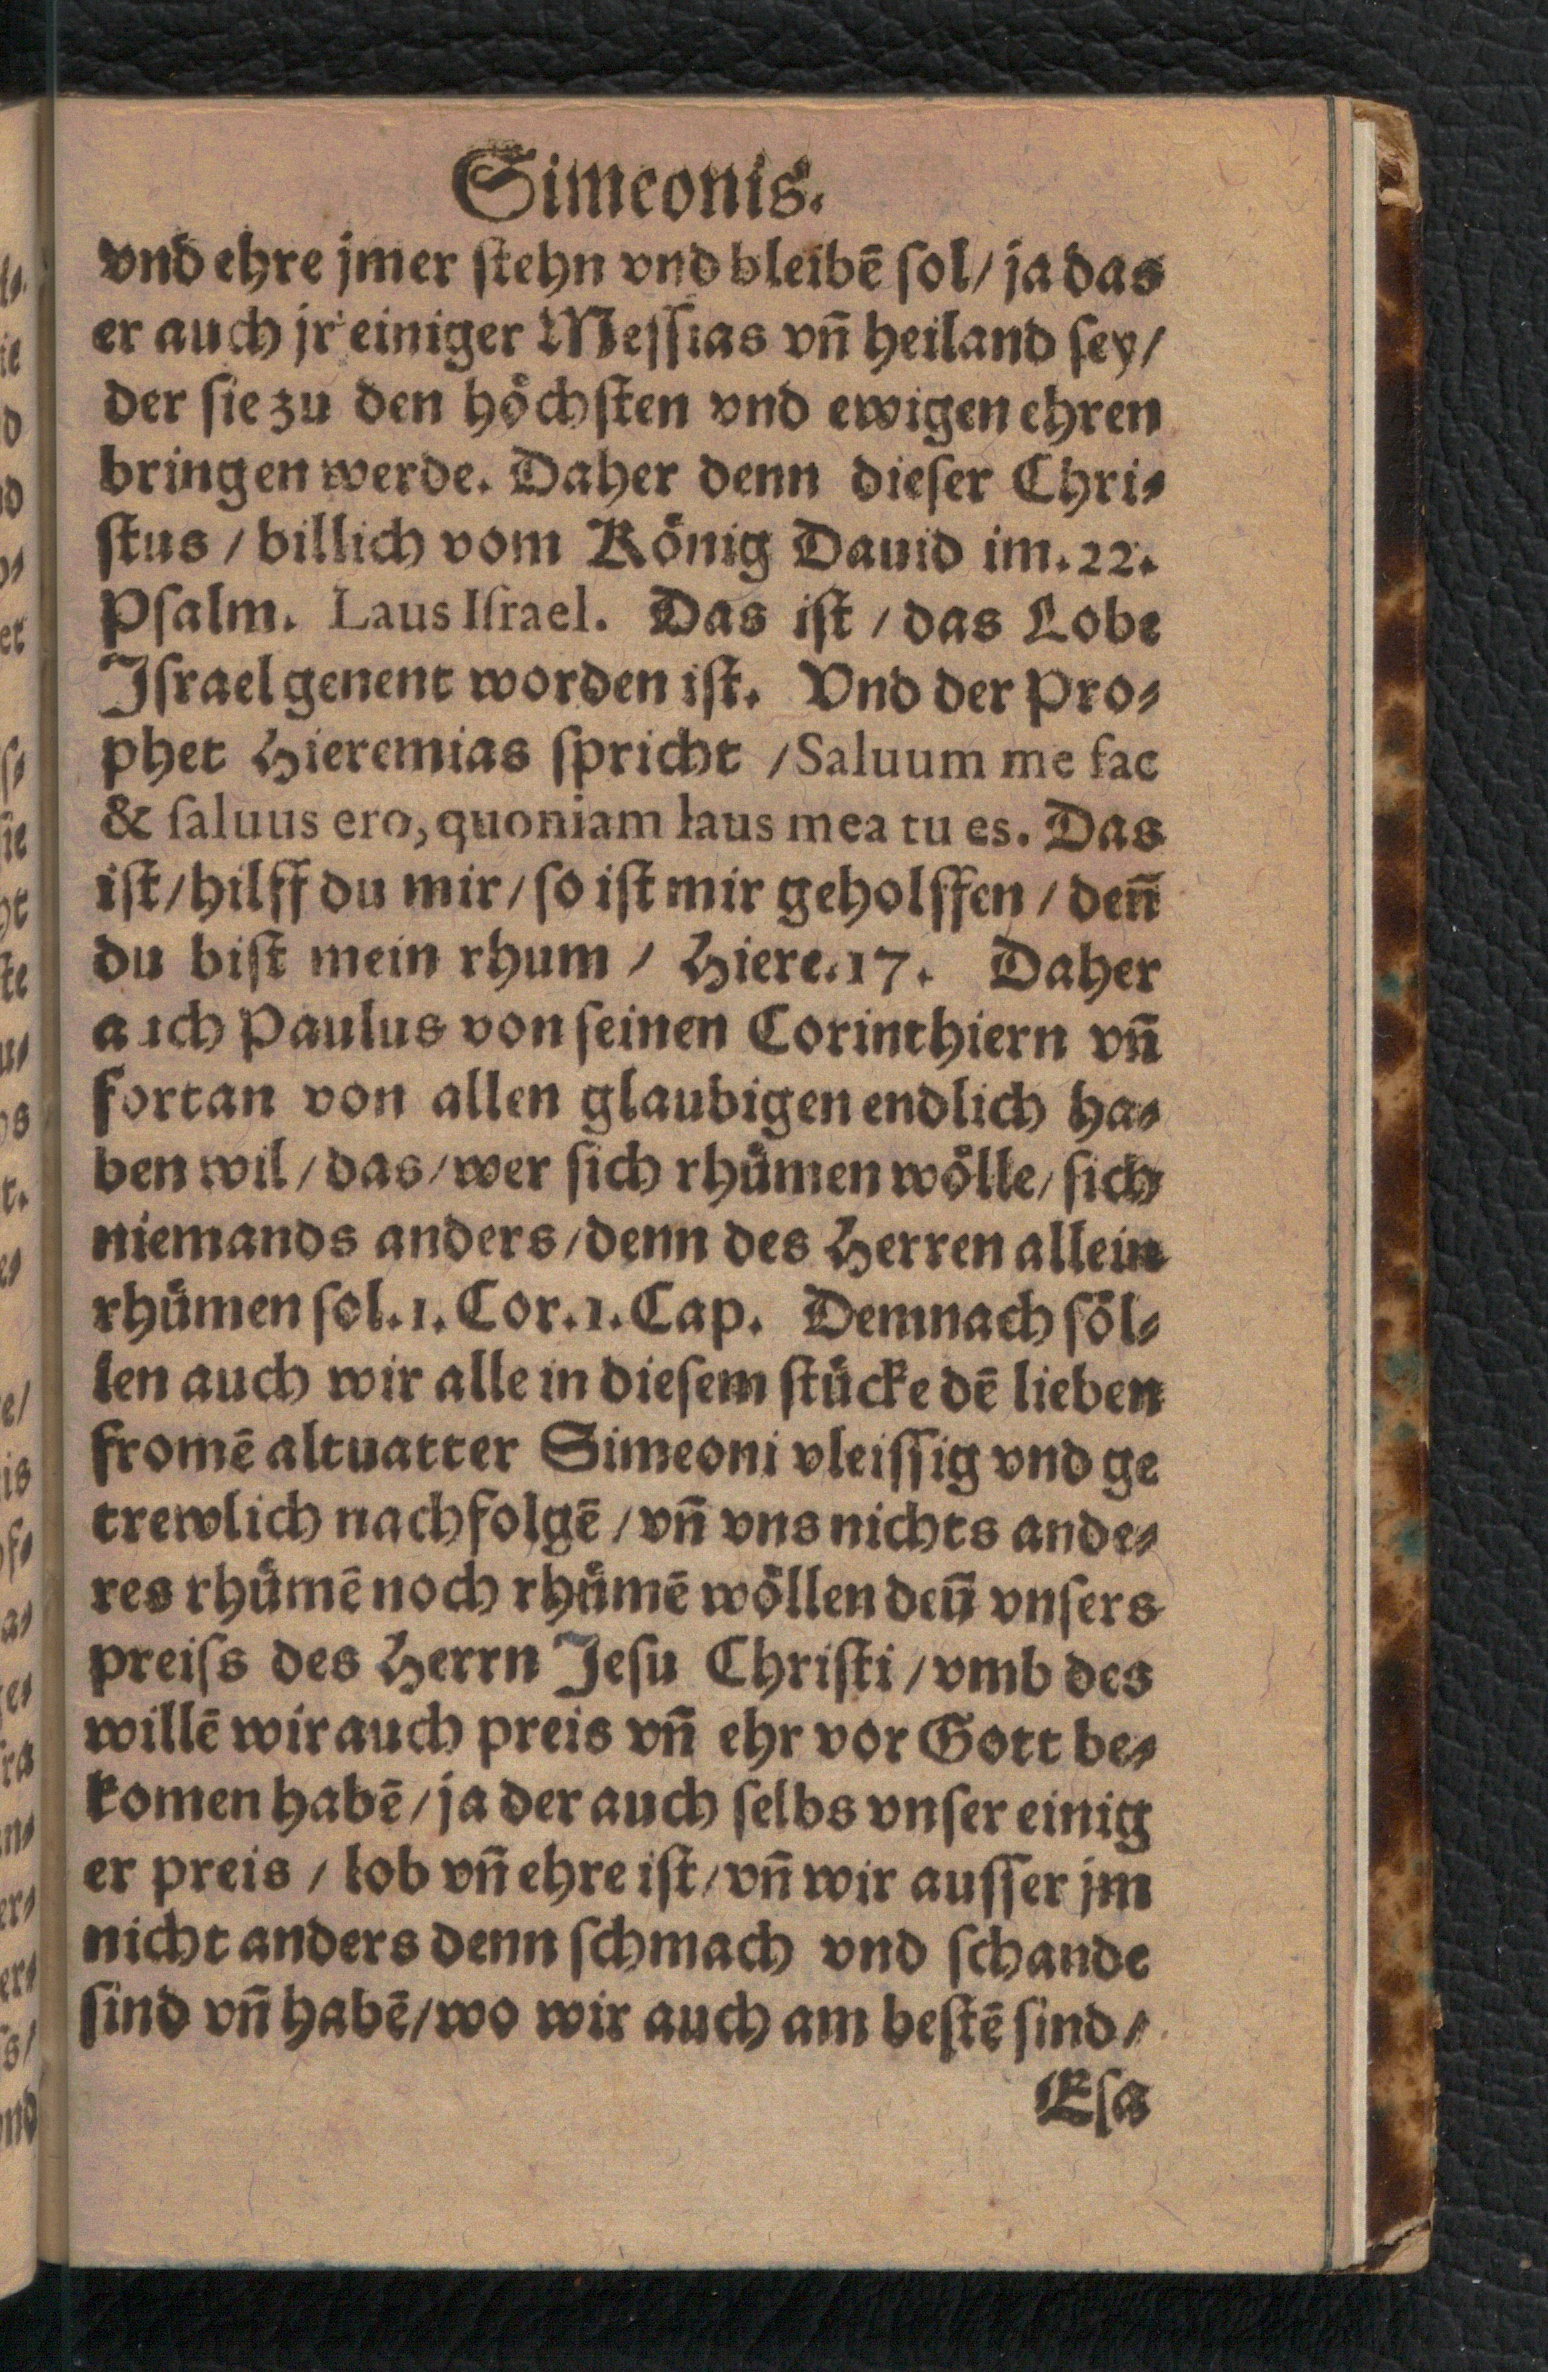 Simeonis.
vnd ehre jmer ſtehn vnd bleibē ſol/ ja das
er auch jr einiger Meſſias vn̄ heiland ſey/
der ſie zu den hoͤchſten vnd ewigen ehren
bringen werde. Daher denn dieſer Chri⸗
ſtus / billich vom Koͤnig Dauid im. 22.
Pſalm. Laus Iſrael. Das iſt / das Lobe
Jſrael genent worden iſt. Vnd der Pro⸗
phet Hieremias ſpricht / Saluum me fac
& ſaluus ero, quoniam laus mea tu es. Das
iſt/ hilff du mir/ ſo iſt mir geholffen / den̄
du biſt mein rhum / Hiere. 17. Daher
auch Paulus von ſeinen Corinthiern vn̄
fortan von allen glaubigen endlich ha⸗
ben wil/ das/ wer ſich rhuͤmen woͤlle/ ſich
niemands anders/ denn des Herren allein
rhuͤmen ſol. 1. Cor. 1. Cap. Demnach ſoͤl⸗
len auch wir alle in dieſem ſtuͤcke dē lieben
fromē altuatter Simeoni vleiſſig vnd ge
trewlich nachfolgē / vn̄ vns nichts ande⸗
res rhuͤmē noch rhuͤmē woͤllen den̄ vnſers
preiſs des Herrn Jeſu Chriſti / vmb des
willē wir auch preis vn̄ ehr vor Gott be⸗
komen habē / ja der auch ſelbs vnſer einig
er preis / lob vn̄ ehre iſt/ vn̄ wir auſſer jm
nicht anders denn ſchmach vnd ſchande
ſind vn̄ habē/ wo wir auch am beſtē ſind/
Eſa